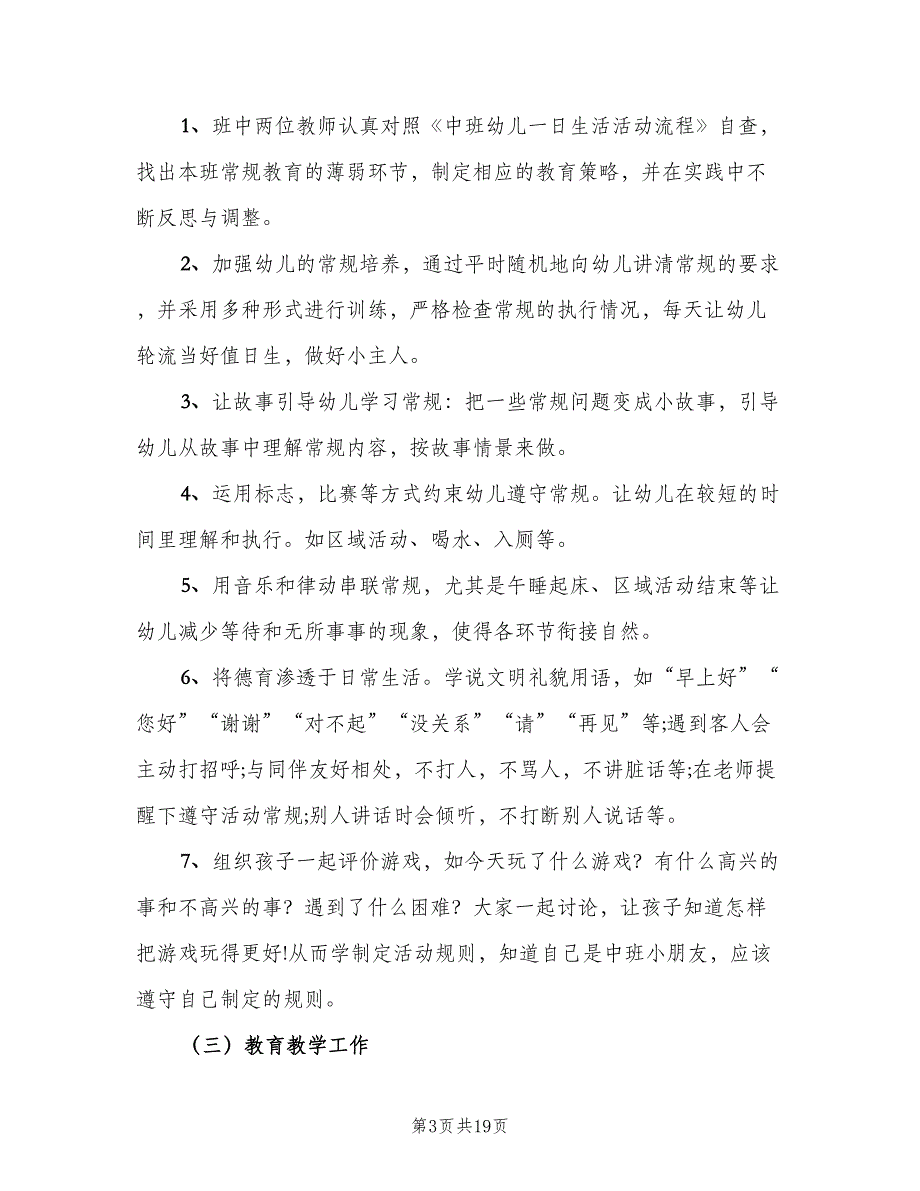 1、班中两位教师认真对照《中班幼儿一日生活活动流程》自查，
找出本班常规教育的薄弱环节，制定相应的教育策略，并在实践中不
断反思与调整。
2、加强幼儿的常规培养，通过平时随机地向幼儿讲清常规的要求
，并采用多种形式进行训练，严格检查常规的执行情况，每天让幼儿
轮流当好值日生，做好小主人。
3、让故事引导幼儿学习常规：把一些常规问题变成小故事，引导
幼儿从故事中理解常规内容，按故事情景来做。
4、运用标志，比赛等方式约束幼儿遵守常规。让幼儿在较短的时
间里理解和执行。如区域活动、喝水、入厕等。
5、用音乐和律动串联常规，尤其是午睡起床、区域活动结束等让
幼儿减少等待和无所事事的现象，使得各环节衔接自然。
6、将德育渗透于日常生活。学说文明礼貌用语，如“早上好”“
您好”“谢谢”“对不起”“没关系”“请”“再见”等;遇到客人会
主动打招呼;与同伴友好相处，不打人，不骂人，不讲脏话等;在老师提
醒下遵守活动常规;别人讲话时会倾听，不打断别人说话等。
7、组织孩子一起评价游戏，如今天玩了什么游戏？有什么高兴的
事和不高兴的事？遇到了什么困难？大家一起讨论，让孩子知道怎样
把游戏玩得更好!从而学制定活动规则，知道自己是中班小朋友，应该
遵守自己制定的规则。
（三）教育教学工作
第3页共19页